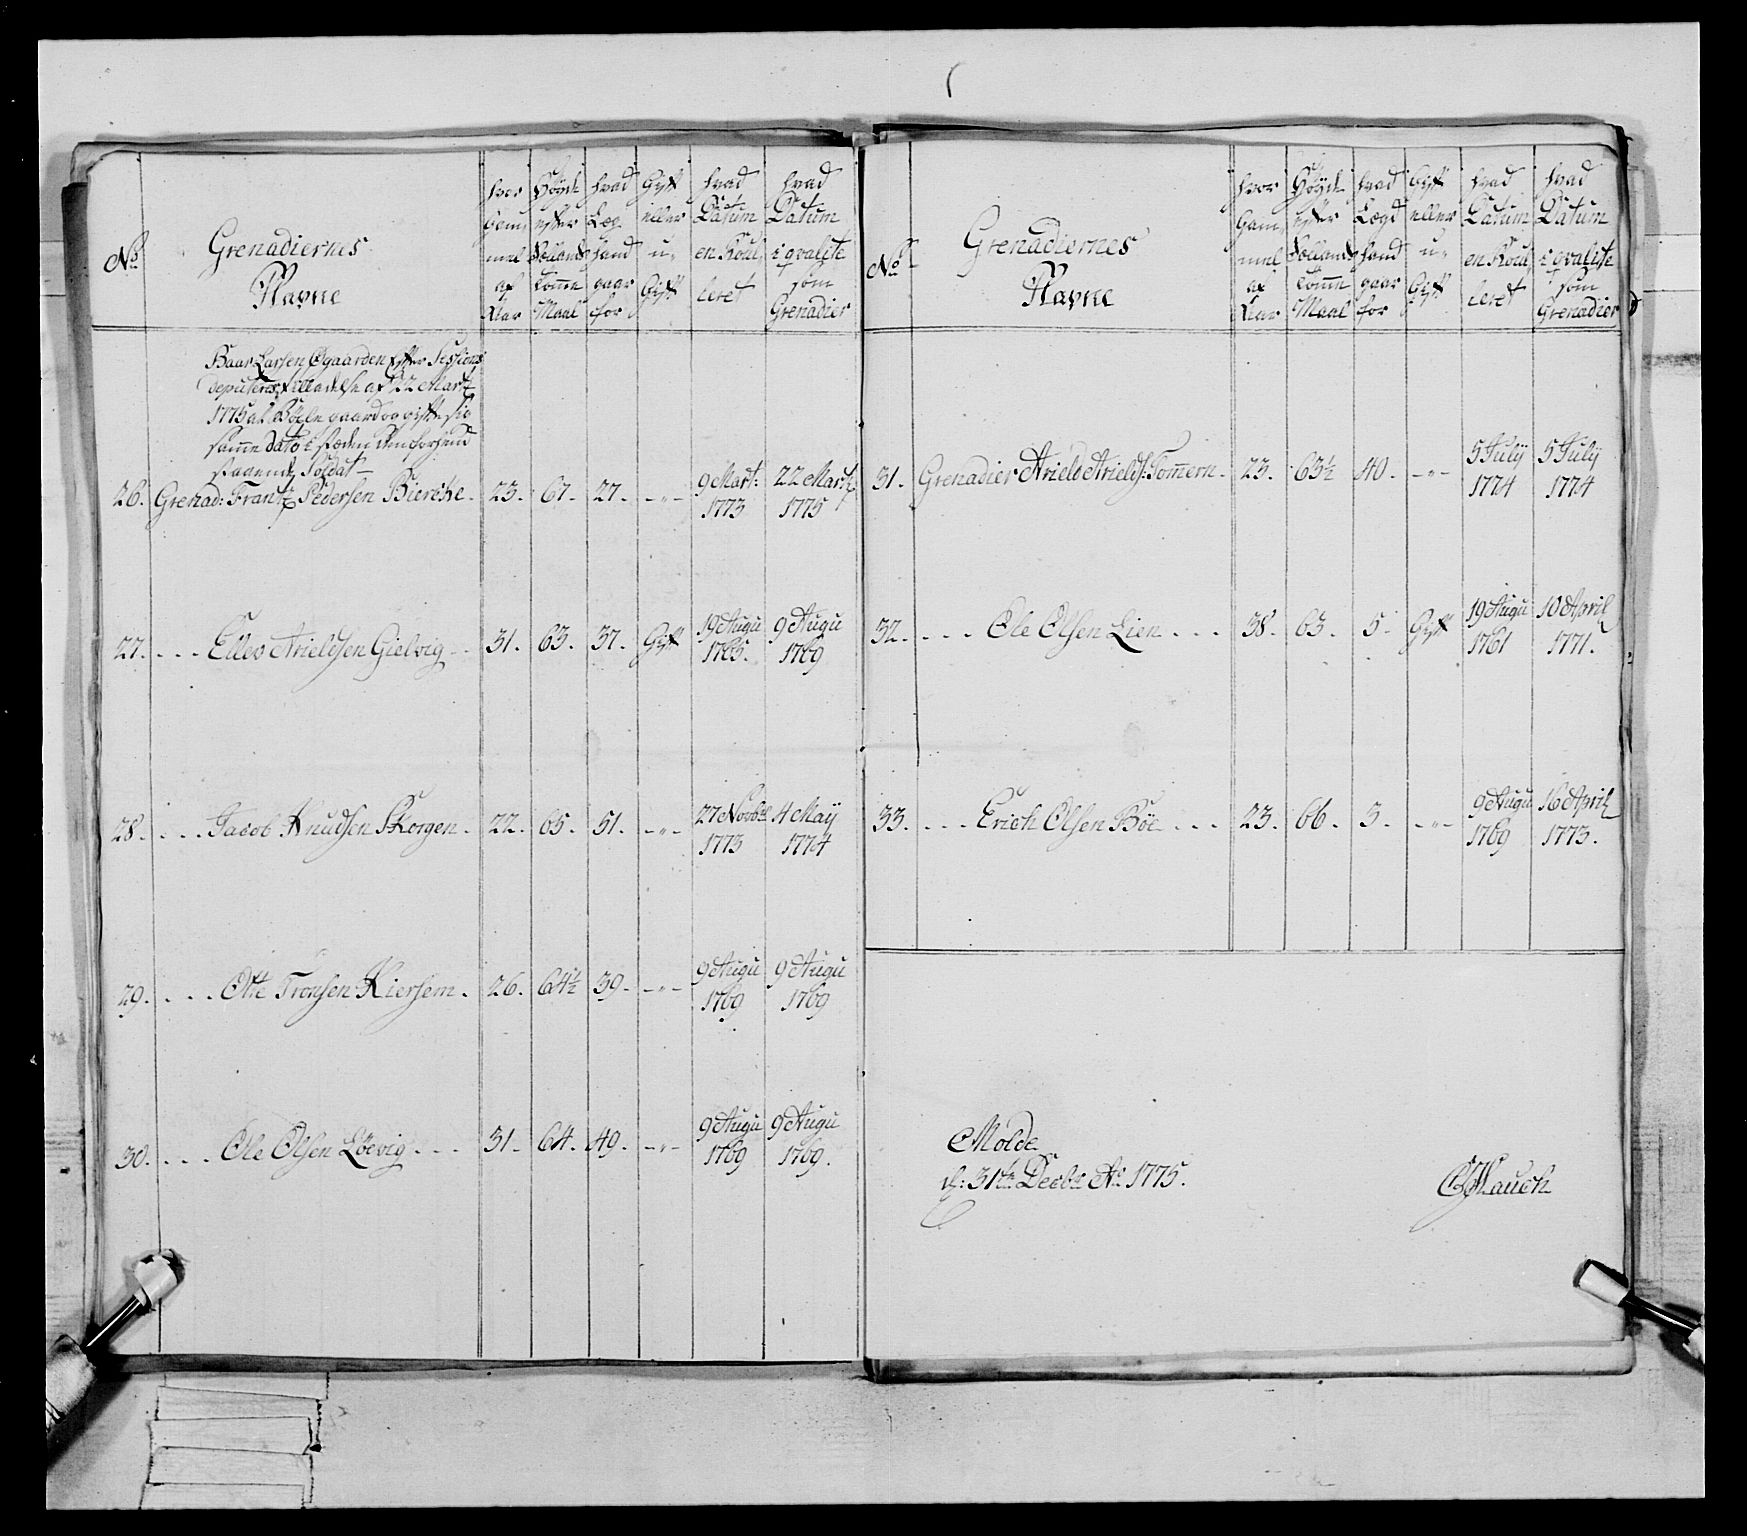 No
Grenadiernes
Navne
hvor Gam, mel af Aar
Höyde efter Sollands Tomme Maal
hvad Læg hand gaar for
Gift eller u, Gift
hvad Datum en Roul, leret
hvad Datum i qvalite som Grenadier
Baar Larsen Øgaarden efter Sessions
deputerts tilladelse af 22 Martz
1775 at Böxle gaard og gifte sig
samme dato i stæden den forhend
staaende Soldat
26. Grenad: Frantz Pedersen Bierche. 23. 67. 27. -"- 9 Mart: 1773 22 Martz 1775
27. . . . Ellev Arieldsen Gielvig . . 31. 63. 37. Gift 19 Augu 1765. 9 Augu 1769
28. . . . Jacob Knudsen Skorgen. 22. 65. 51. -"- 27 Novbr 1773 4 Maÿ 1774
29. . . . Otte Tronsen Kiersem. 26. 64½ 39. -"- 9 Augu 1769 9 Augu 1769
30. . . . Ole Olsen Löevig . . . 31. 64. 49. -"- 9 Augu 1769 9 Augu 1769.
No
Grenadiernes
Navne
hvor Gam, mel af Aar
Höyde efter Sollands Tomme Maal
hvad Lægd hand gaar for
Gift eller u, Gift
hvad Datum en Roul, leret
hvad Datum i qvalite som Grenadier
31. Grenadier Arield Arields: Tomern. 23. 63½ 40. -"- 5 Julÿ 1774 5 Julÿ 1774
32. . . . Ole Olsen Lien . . . 38. 63. 5. Gift 19 Augu 1761 10 April 1771.
33. . . . Erich Olsen Böe . . . 23. 66. 3. -"- 9 Augu 1769 16 April 1773.
Molde
d: 31te Decbr Ao 1775.
Hauch